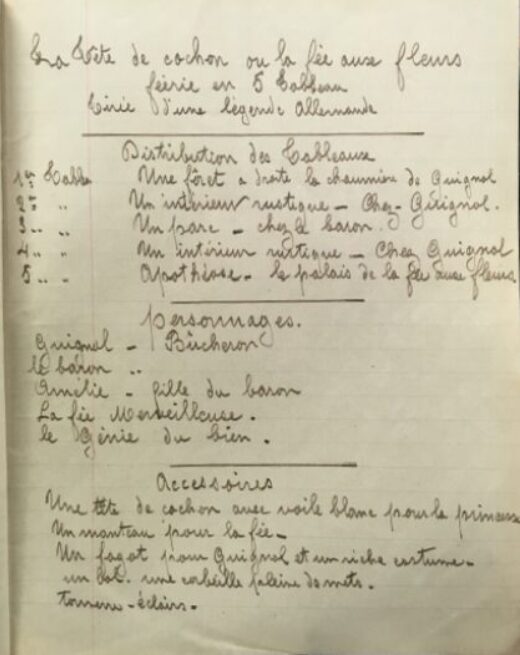 La Tête de cochon ou la fée aux fleurs
féérie en 5 Tableau
Tirée d'une légende Allemande
Distribution des Tableaux
1er Table Une fôret a droite la chaumière de Guignol
2e " Un intérieur rustique - Chez Guignol.
3 .. " Un parc - chez le baron.
4 .. " Un intérieur rustique - Chez Guignol
5 .. " Apothéose - le palais de la fée aux fleurs
Personnages.
Guignol - Bûcheron
le baron ..
Amélie - fille du baron
La fée Merveilleuse.
le Génie du bien.
Accessoires
Une tête de cochon avec voile blanc pour la princesse
Un manteau pour la fée -
Un fagot pour Guignol et un riche costume -
un une corbeille pleine de mets.
tonnerre - éclairs -